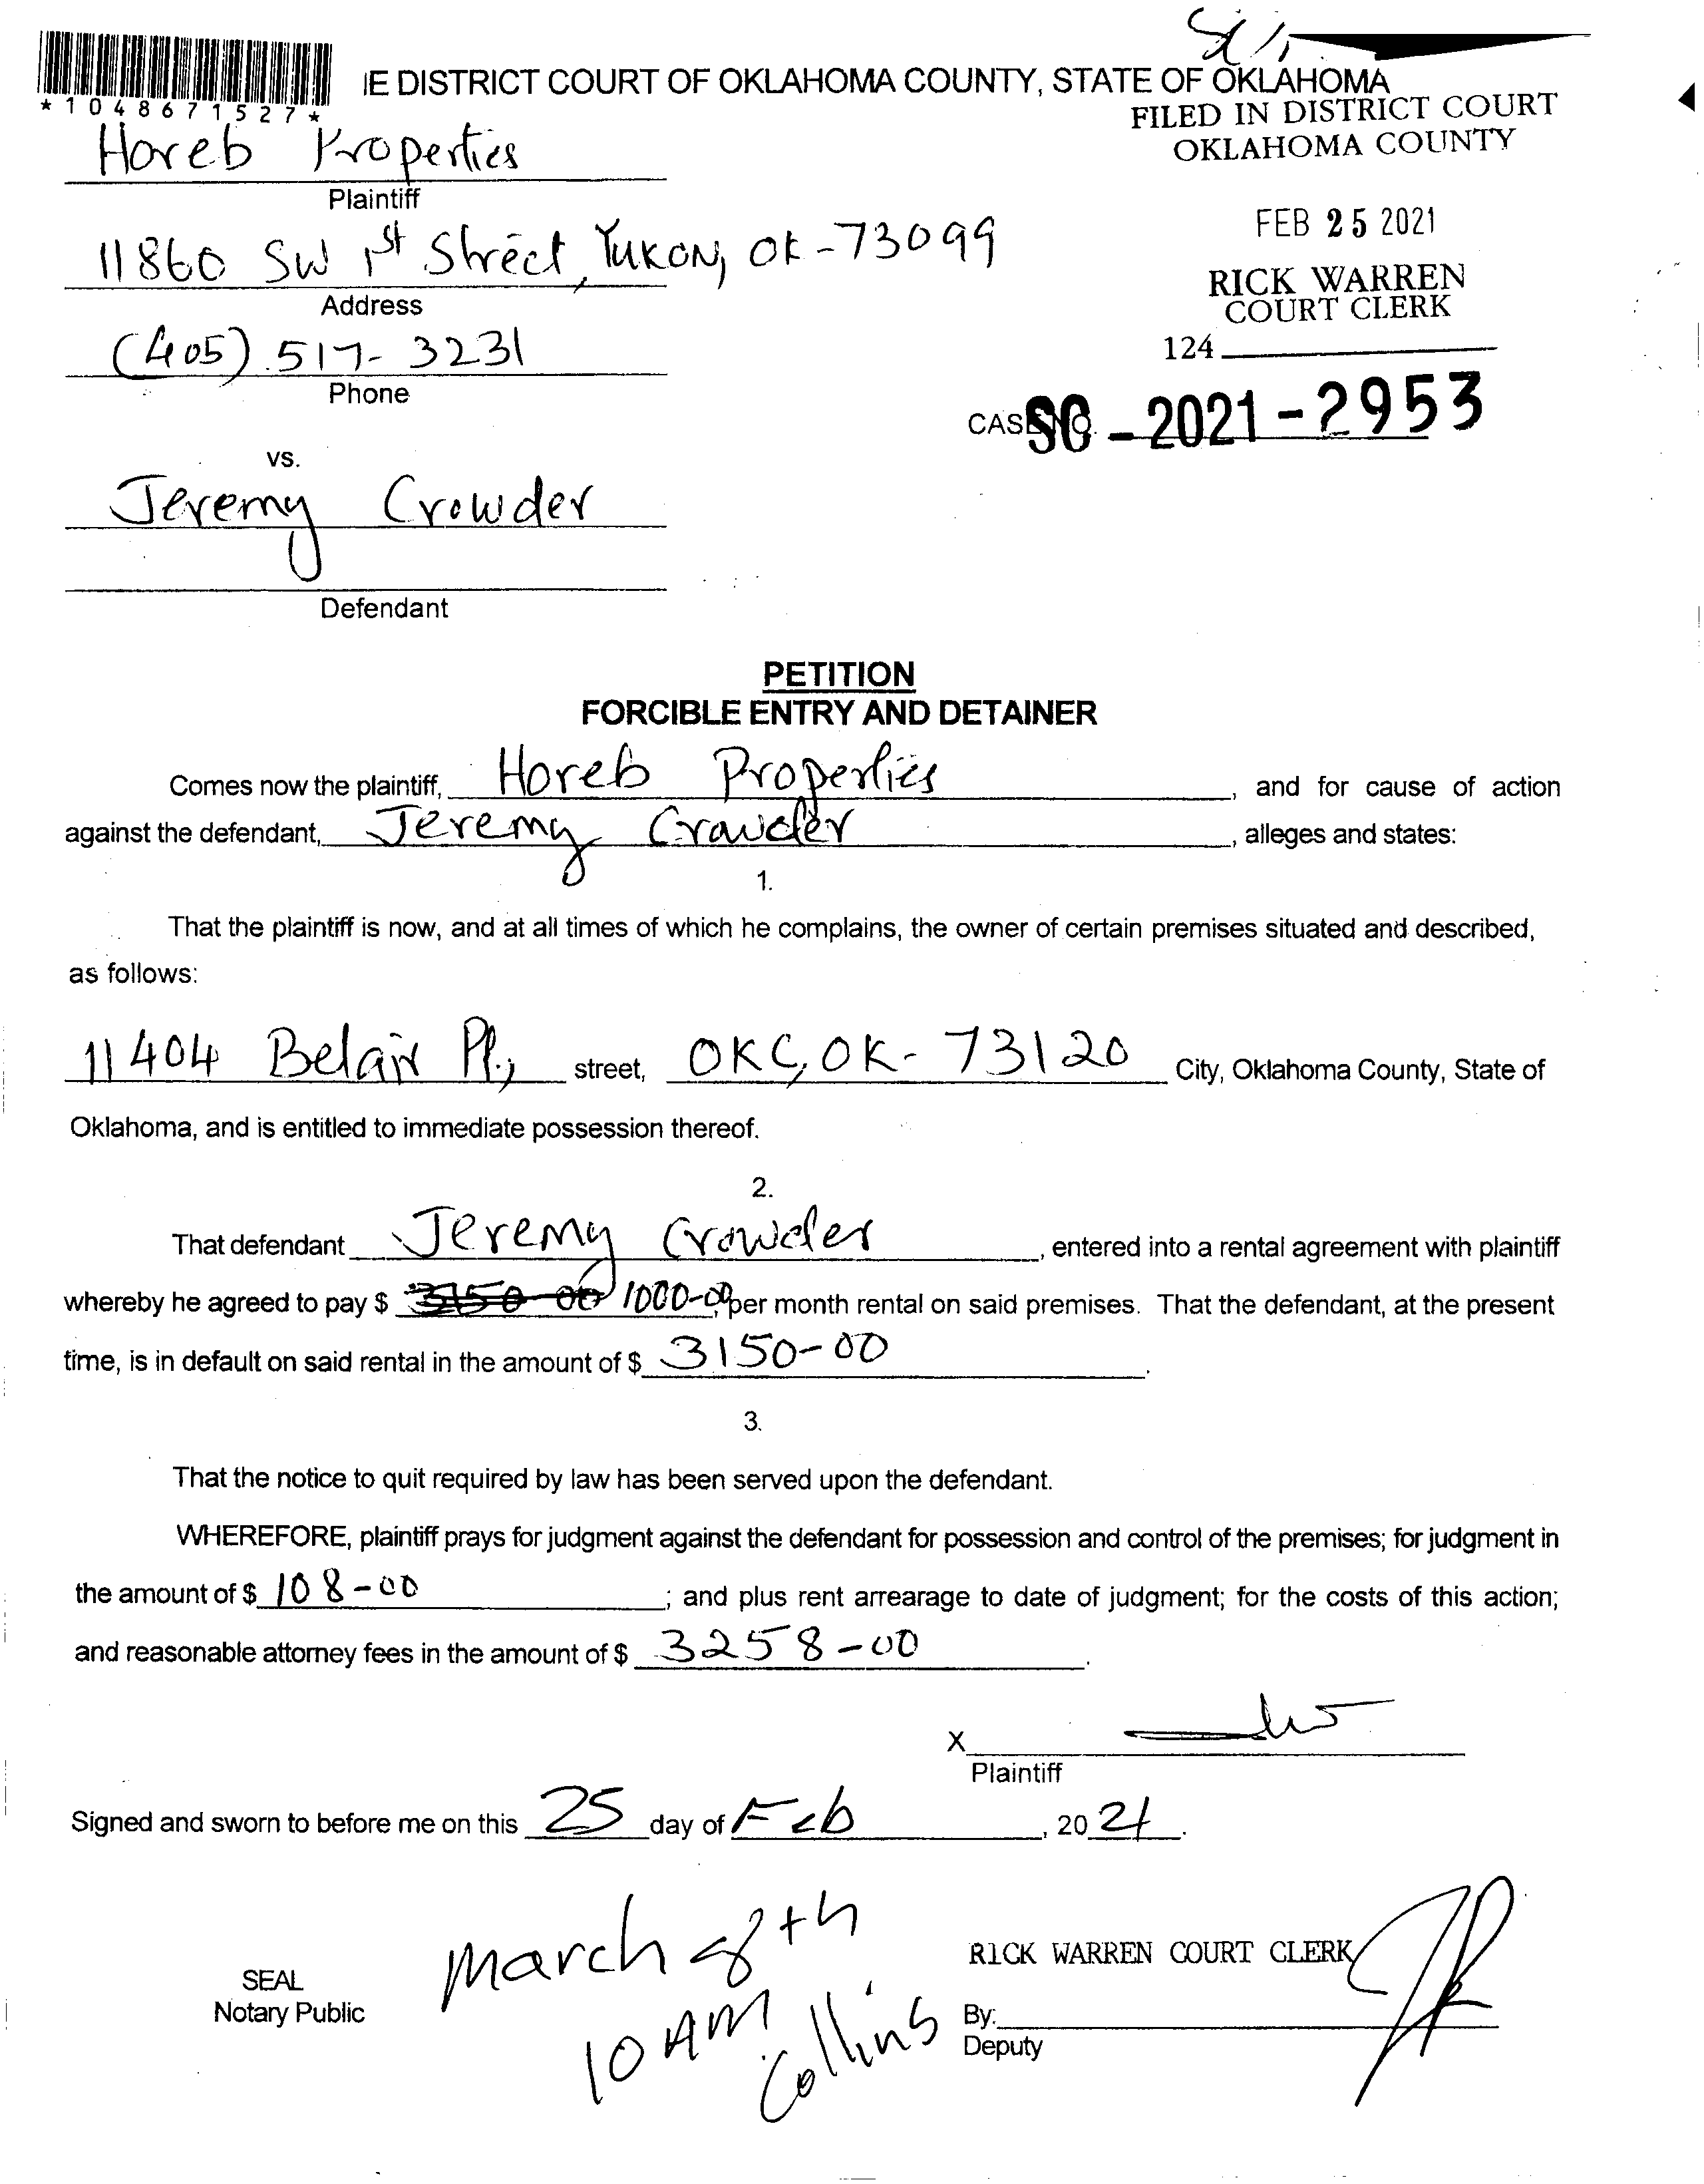 *1048671527*
IE DISTRICT COURT OF OKLAHOMA COUNTY, STATE OF OKLAHOMA
FILED IN DISTRICT COURT
OKLAHOMA COUNTY
Horeb Properties
Plaintiff
FEB 25 2021
11860 SW 1st Street, Yukon, OK-73099
Address
RICK WARREN
COURT CLERK
(405) 517-3231
Phone
124
CASE NO. SC-2021-2953
vs.
Jeremy Crowder
Defendant
PETITION
FORCIBLE ENTRY AND DETAINER
Comes now the plaintiff, Horeb Properties, and for cause of action
against the defendant, Jeremy Crowder, alleges and states:
1.
That the plaintiff is now, and at all times of which he complains, the owner of certain premises situated and described,
as follows:
11404 Belair Pl., street, OKC, OK-73120 City, Oklahoma County, State of
Oklahoma, and is entitled to immediate possession thereof.
2.
That defendant Jeremy Crowder, entered into a rental agreement with plaintiff
whereby he agreed to pay $ 3150-00 1000-00, per month rental on said premises. That the defendant, at the present
time, is in default on said rental in the amount of $ 3150-00.
3.
That the notice to quit required by law has been served upon the defendant.
WHEREFORE, plaintiff prays for judgment against the defendant for possession and control of the premises; for judgment in
the amount of $ 108-00; and plus rent arrearage to date of judgment; for the costs of this action;
and reasonable attorney fees in the amount of $ 3258-00.
X
Plaintiff
Signed and sworn to before me on this 25 day of Feb, 2021.
March 8th
10 AM
Collins
RICK WARREN COURT CLERK
SEAL
Notary Public
By:
Deputy